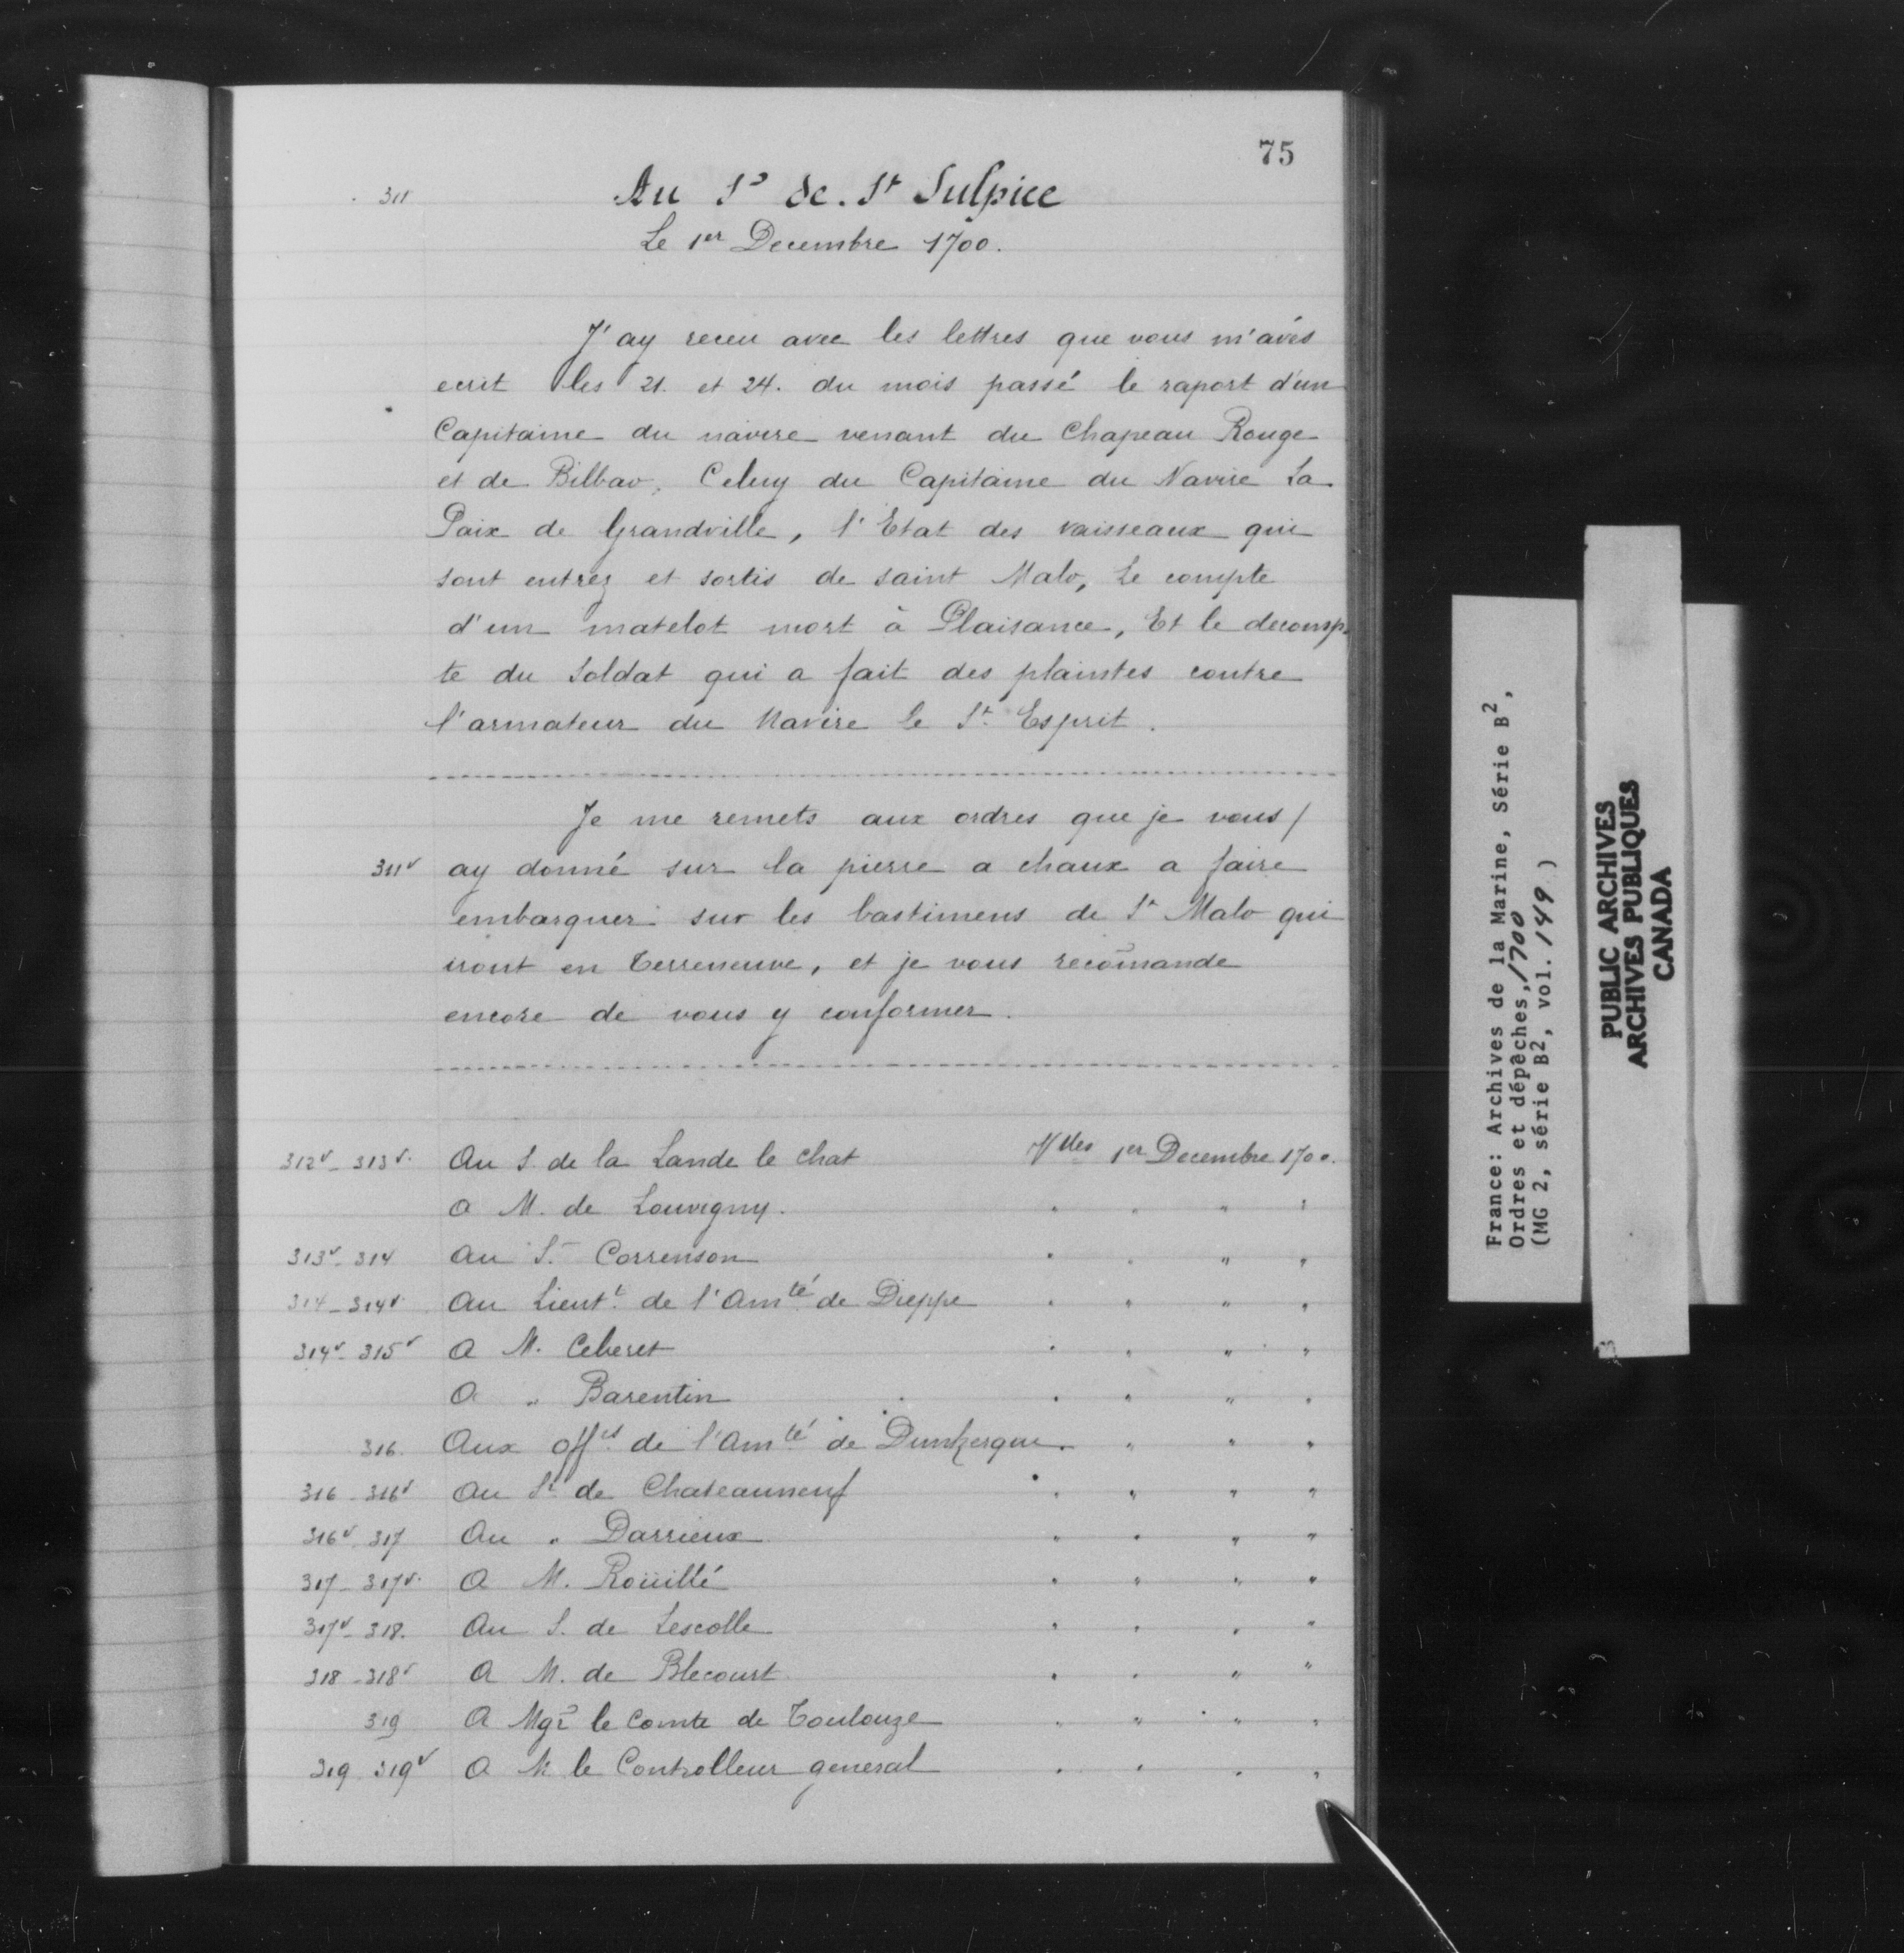 75
311
Au Sr de St Sulpice
Le 1er Decembre 1700.
J'ay receu avec les lettres que vous m'avés
ecrit les 21. et 24. du mois passé le raport d'un
Capitaine du navire venant du Chapeau Rouge
et de Bilbao, Celuy du Capitaine du Navire La
Paix de Grandville, l'Etat des vaisseaux qui
sont entrez et sortis de saint Malo, Le compte
d'un matelot mort à Plaisance, Et le decomp-
te du Soldat qui a fait des plaintes contre
l'armateur du Navire le St Esprit.
Je me remets aux ordres que je vous /
311v ay donné sur la pierre a chaux a faire
embarquer sur les bastimens de St Malo qui
iront en Terreneuve, et je vous recom̃ande
encore de vous y conformer.
312v - 313v. Au S. de la Lande le chat Vlles 1er Decembre 1700.
A M. de Louvigny. " " " "
313v - 314 Au Sr Correnson " " " "
314 - 314v Au Lieutt de l'Amté de Dieppe " " " "
314v - 315v A M. Ceberet " " " "
A " Barentin " " " "
316. Aux offrs de l'Amté de Dunkerque. " " "
316 - 316v Au Sr de Chateauneuf " " " "
316v. 317 Au " Darrieux " " " "
317 - 317v. A M. Roüillé " " " "
317v - 318. Au S. de Lescolle " " " "
318 - 318v A M. de Blecourt " " " "
319 A Mgr le Comte de Toulouze " " " "
319 319v A M. le Controlleur general " " " "
France: Archives de la Marine, Série B2,
Ordres et dépêches, 1700
(MG 2, série B2, vol. 149 )
PUBLIC ARCHIVES
ARCHIVES PUBLIQUES
CANADA